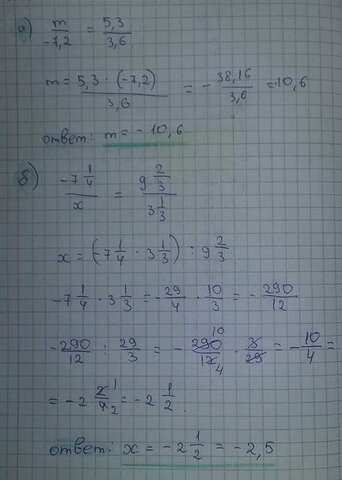 а) m/-7,2 = 5,3/3,6
m = 5,3 · (-7,2)/3,6 = - 38,16/3,6 = -10,6
ответ: m = - 10,6
б) -7 1/4 / x = 9 2/3 / 3 1/3
x = (-7 1/4 · 3 1/3) : 9 2/3
-7 1/4 · 3 1/3 = - 29/4 · 10/3 = - 290/12
- 290/12 : 29/3 = - 290 10/12 4 · 3/29 = - 10/4 =
= - 2 2 1/4 2 = - 2 1/2
ответ: x = - 2 1/2 = - 2,5